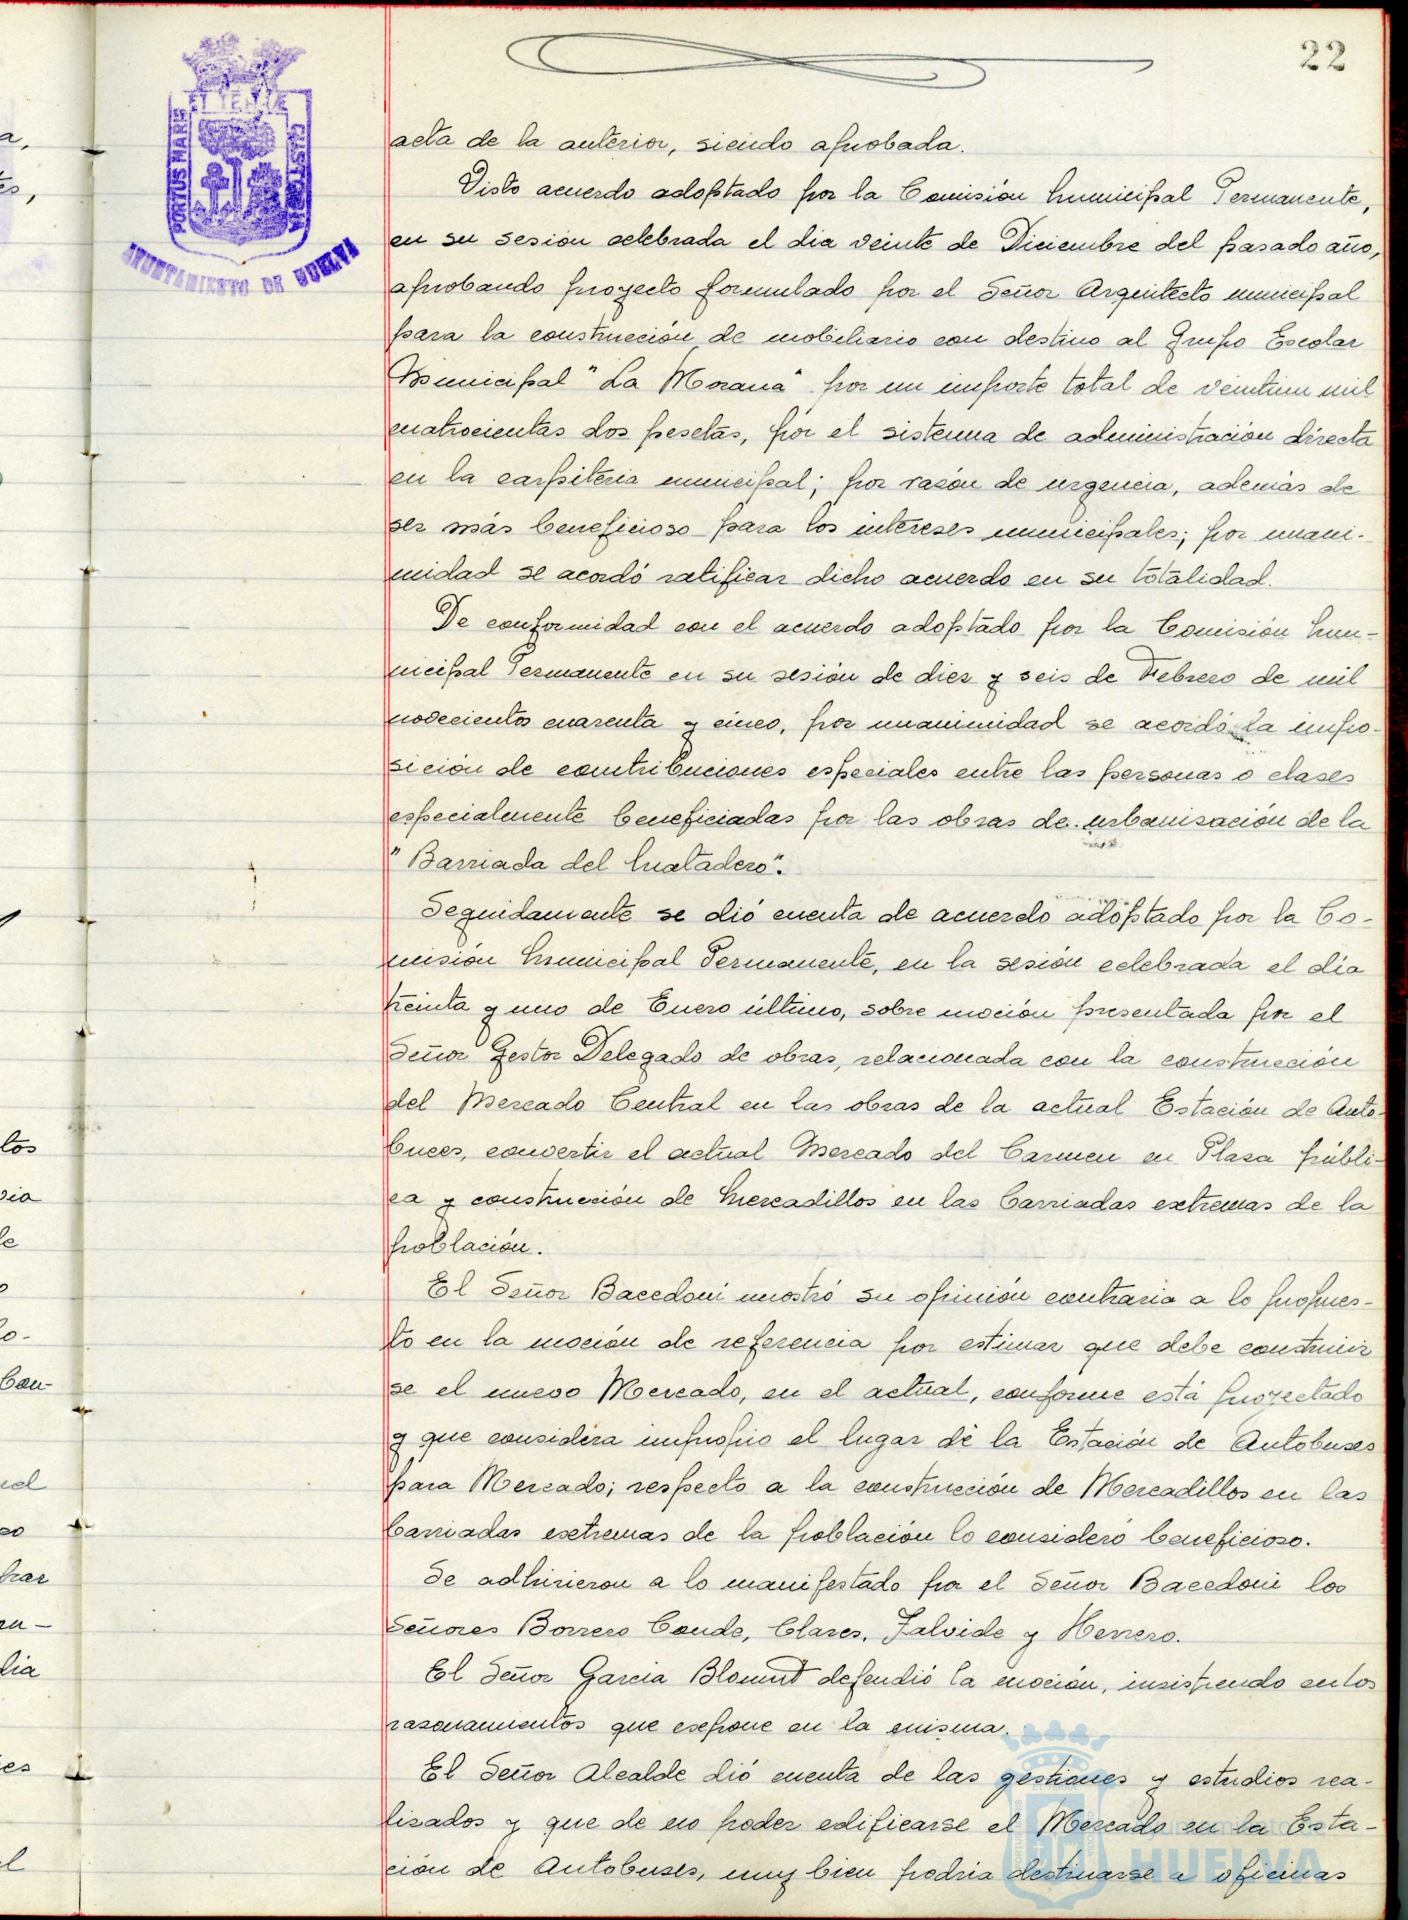 22
PORTUS MARIS ET TERRAE CUSTODIA
AYUNTAMIENTO DE HUELVA
acta de la anterior, siendo aprobada.
Visto acuerdo adoptado por la Comisión Municipal Permanente,
en su sesión celebrada el dia veinte de Diciembre del pasado año,
aprobando proyecto formulado por el Señor Arquitecto municipal
para la construcción de mobiliario con destino al Grupo Escolar
Municipal "La Morana" por un importe total de veintiun mil
cuatrocientas dos pesetas, por el sistema de administración directa
en la carpiteria municipal; por razón de urgencia, además de
ser más beneficioso para los intereses municipales; por unani-
midad se acordó ratificar dicho acuerdo en su totalidad.
De conformidad con el acuerdo adoptado por la Comisión Mu-
nicipal Permanente en su sesión de diez y seis de Febrero de mil
novecientos cuarenta y cinco, por unanimidad se acordó la impo-
sición de contribuciones especiales entre las personas o clases
especialmente beneficiadas por las obras de urbanisación de la
"Barriada del Matadero".
Seguidamente se dió cuenta de acuerdo adoptado por la Co-
misión Municipal Permanente, en la sesión celebrada el día
treinta y uno de Enero último, sobre moción presentada por el
Señor Gestor Delegado de obras, relacionada con la construcción
del Mercado Central en las obras de la actual Estación de Auto-
buces, convertir el actual Mercado del Carmen en Plaza públi-
ca y construcción de Mercadillos en las barriadas extremas de la
población.
El Señor Bacedoni mostró su opinión contraria a lo propues-
to en la moción de referencia por estimar que debe construir
se el nuevo Mercado, en el actual, conforme está proyectado
y que considera impropio el lugar de la Estación de Autobuses
para Mercado; respecto a la construcción de Mercadillos en las
barriadas extremas de la población lo consideró beneficioso.
Se adhirieron a lo manifestado por el Señor Bacedoni los
Señores Borrero Conde, Clares, Zalvide y Herrero.
El Señor Garcia Blount defendió la moción, insistiendo en los
razonamientos que expone en la misma.
El Señor Alcalde dió cuenta de las gestiones y estudios rea-
lizados y que de no poder edificarse el Mercado en la Esta-
ción de Autobuses, muy bien podria destinarse a oficinas
HUELVA